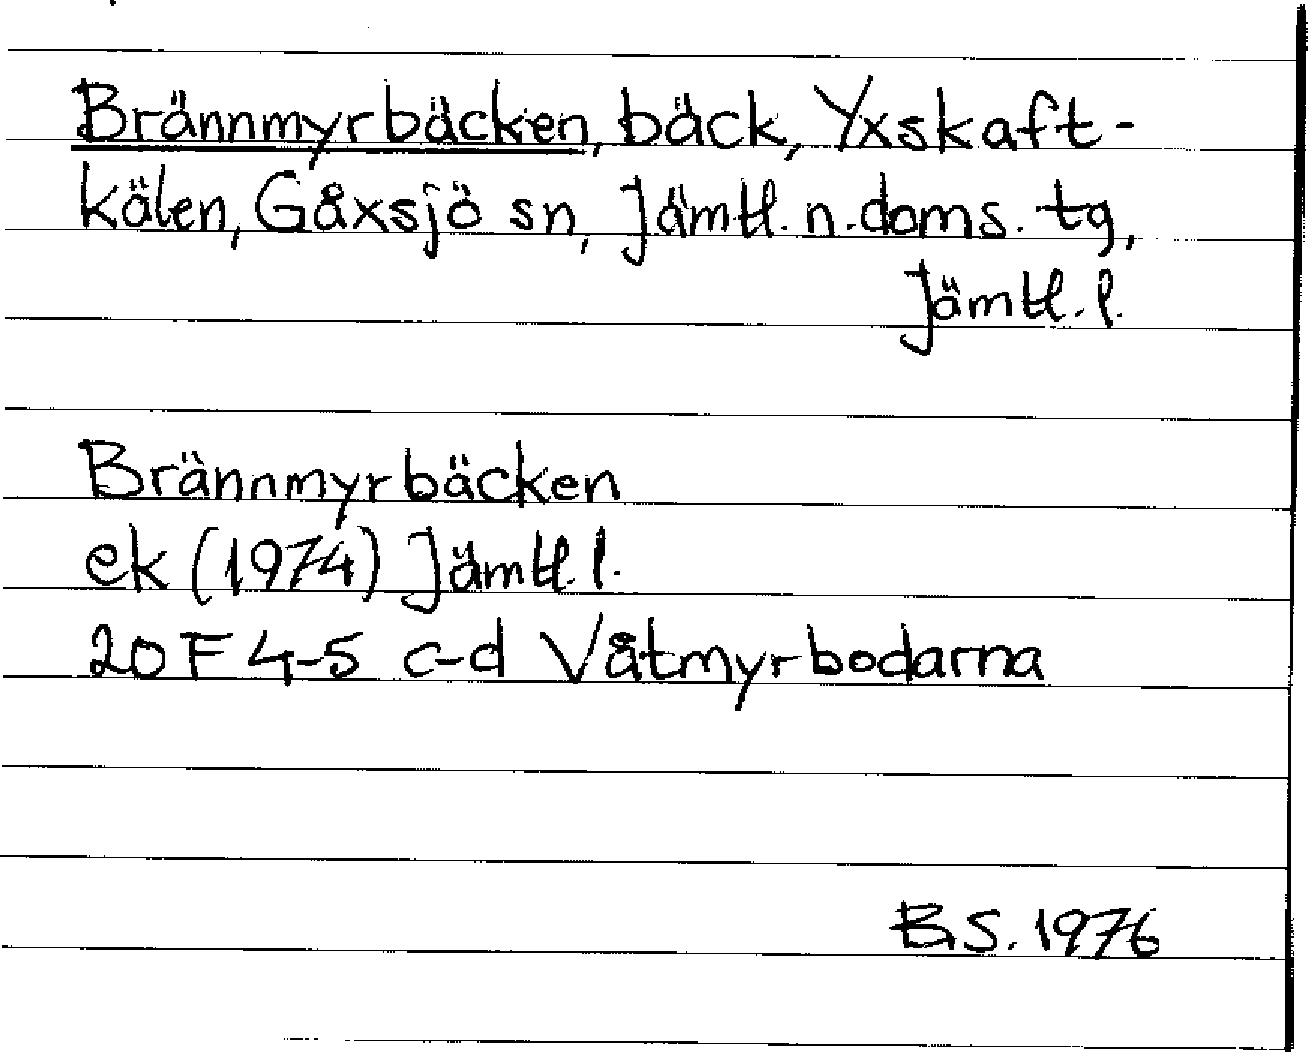 Brännmyrbäcken, bäck, Yxskaft-
kälen, Gåxsjö sn, Jämtl. n. doms. tg,
Jämtl. l.
Brännmyrbäcken
ek (1974) Jämtl. l.
20 F 4-5 c-d Våtmyrbodarna
B.S. 1976